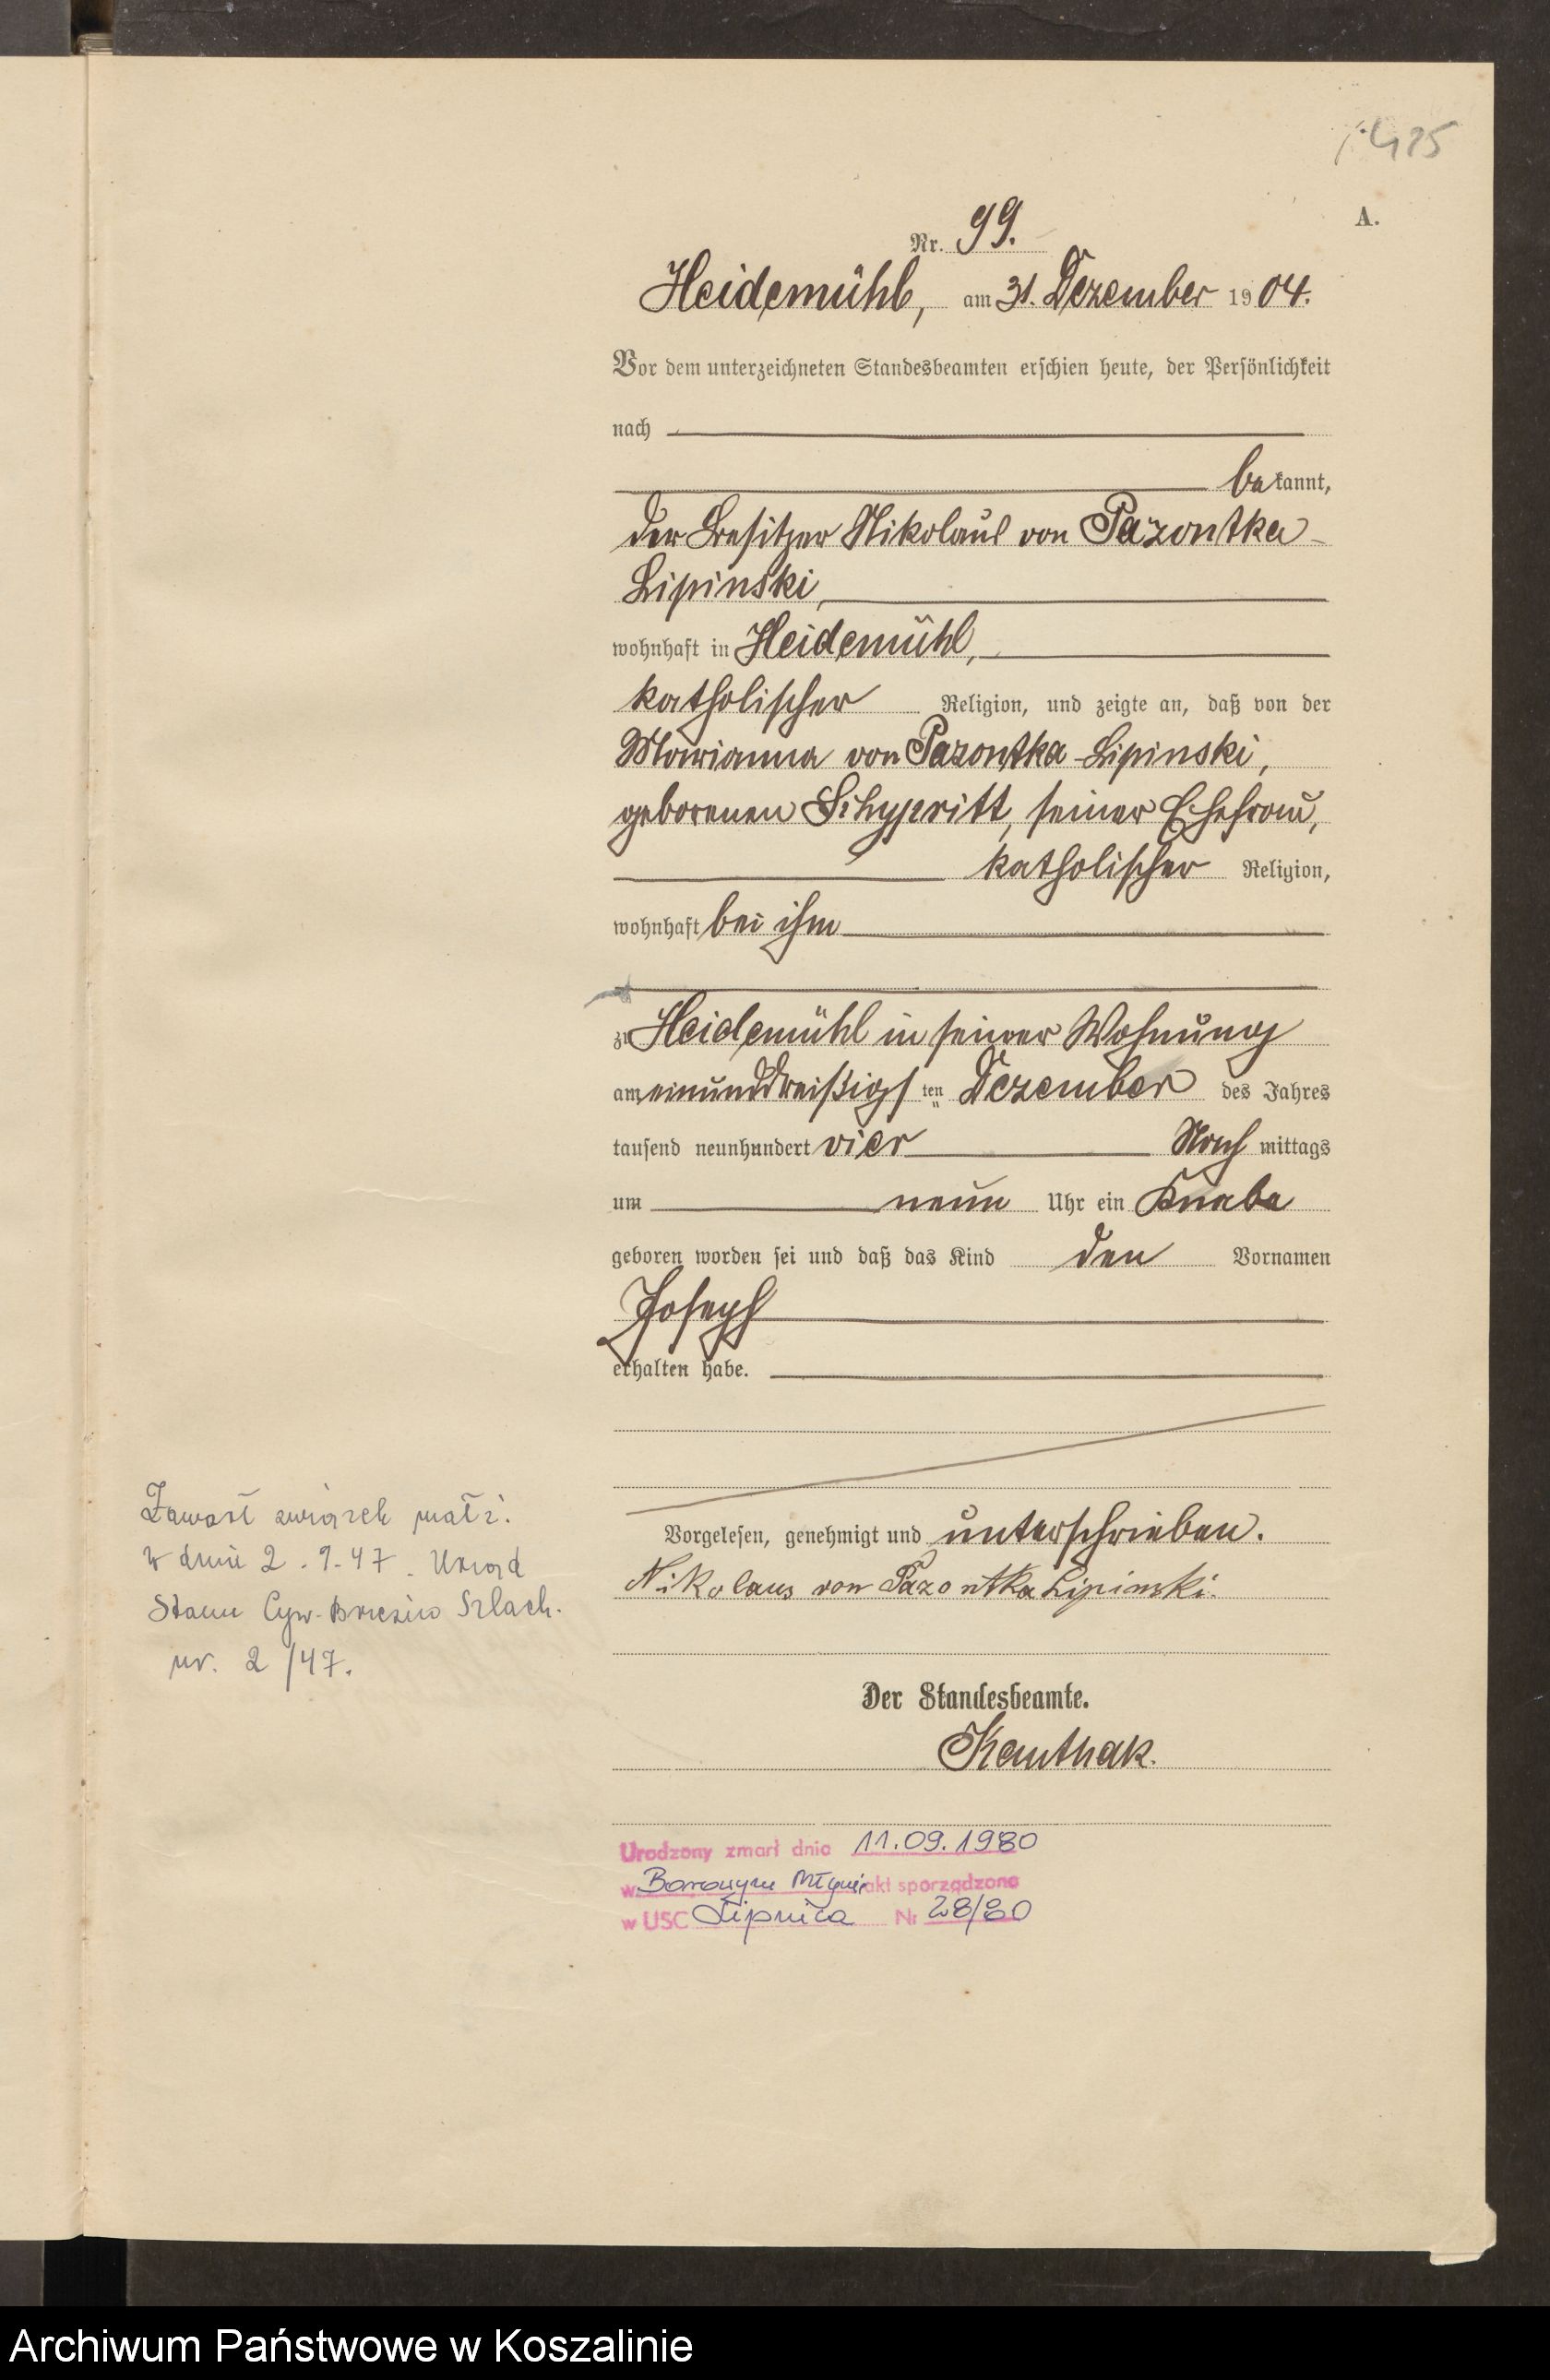 425
A.
Nr. 99.
Heidemühl, am 31. Dezember 1904.
Vor dem unterzeichneten Standesbeamten erschien heute, der Persönlichkeit
nach
bekannt,
der Besitzer Nikolaus von Pazontka-
Lipinski,
wohnhaft in Heidemühl,
katholischer Religion, und zeigte an, daß von der
Marianna von Pazontka-Lipinski,
geborenen Schypritt, seiner Ehefrau,
katholischer Religion,
wohnhaft bei ihm
zu Heidemühl in seiner Wohnung
am einunddreißigsten Dezember des Jahres
tausend neunhundert vier Nachmittags
um neun Uhr ein Knabe
geboren worden sei und daß das Kind den Vornamen
Joseph
erhalten habe.
Vorgelesen, genehmigt und unterschrieben.
Nikolaus von Pazontka Lipinski.
Der Standesbeamte.
Kauthak.
Zawarł związek małż.
w dniu 2.9.47. Urząd
Stanu Cyw. Brzeźno Szlach.
nr. 2/47.
Urodzony zmarł dnia 11.09.1980
w Borowym Młynie akt sporządzono
w USC Lipnica Nr 28/80
Archiwum Państwowe w Koszalinie